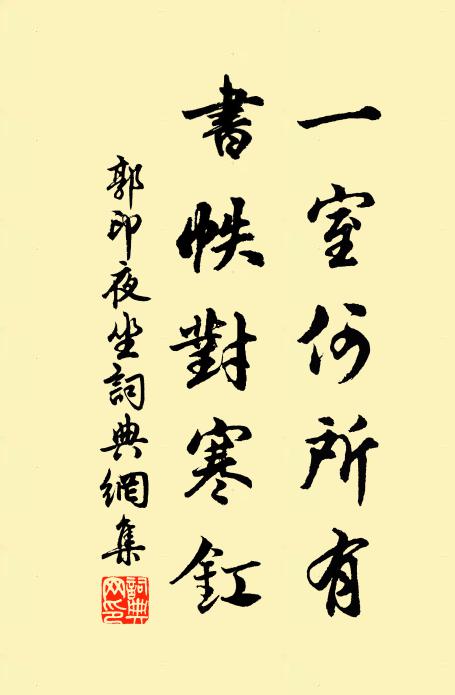 一室何所有
書帙對寒釭
郭印夜坐詞典網集
詞典網印